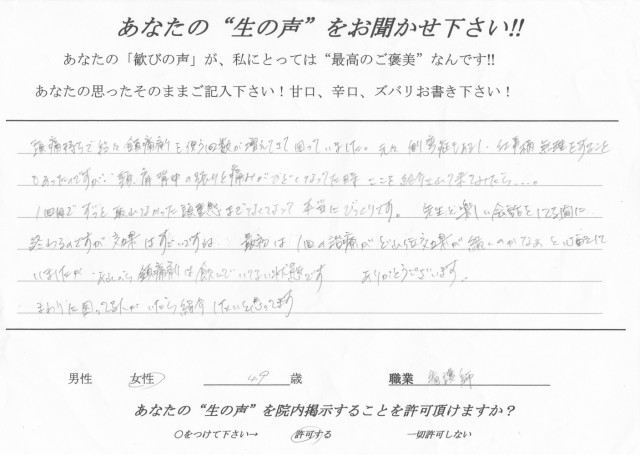 あなたの“生の声”をお聞かせ下さい!!
あなたの「歓びの声」が、私にとっては“最高のご褒美”なんです!!
あなたの思ったそのままご記入下さい！甘口、辛口、ズバリお書き下さい！
頭痛持ちで 鎮痛剤を使う回数が増えてきて困っていました。元々側弯症もあり、仕事柄無理をすること
もあったのですが、頭、肩、背中の張りと痛みがひどくなってた時、ここを紹介されて来てみたら....。
1回目でずっと取れなかった頭重感までなくなって本当にびっくりです。先生と楽しい会話をしてる間に
終わるのですが効果はすごいですね。最初は1回の治療がどれ位効果が続くのかなぁと
いましたが 鎮痛剤は飲んでいない状態です ありがとうございます。
まわりに困ってる人がいたら紹介したいと思ってます
男性 女性 49 歳 職業 看護師
あなたの“生の声”を院内掲示することを許可頂けますか？
○をつけて下さい→ 許可する 一切許可しない